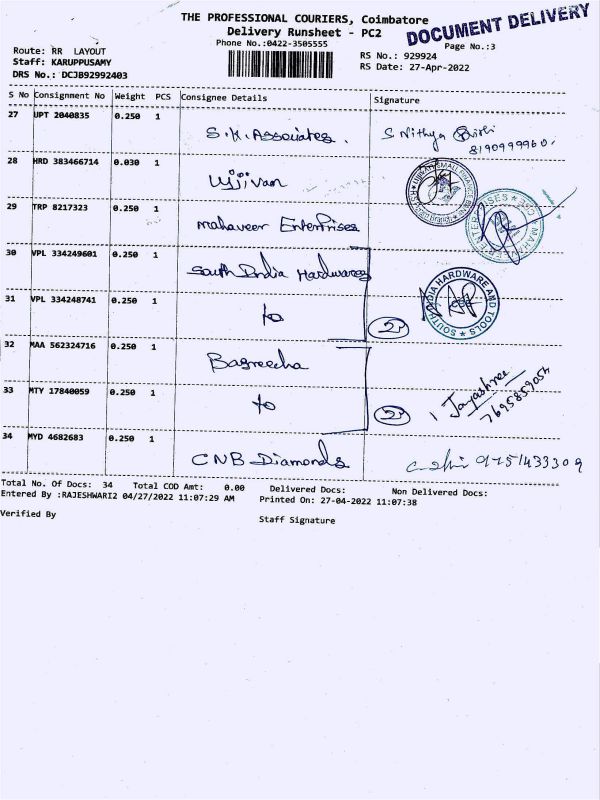 THE PROFESSIONAL COURIERS, Coimbatore
DOCUMENT DELIVERY
Delivery Runsheet - PC2
Phone No.:0422-3505555
Page No.:3
Route: RR LAYOUT
RS No.: 929924
Staff: KARUPPUSAMY
RS Date: 27-Apr-2022
DRS No.: DCJB92992403
S No Consignment No Weight PCS Consignee Details Signature
27 UPT 2040835 0.250 1
S.K. Associates. S Nithya
8190999960.
28 HRD 383466714 0.030 1
Ujjivan
29 TRP 8217323 0.250 1
Mahaveer Enterprises
30 VPL 334249601 0.250 1
South India Hardwares
SOUTH INDIA HARDWARE AND TOOLS
31 VPL 334248741 0.250 1
to 2
32 MAA 562324716 0.250 1
Bagreecha
33 MTY 17840059 0.250 1
to 2 Jayashree
7695859054
34 MYD 4682683 0.250 1
CNB Diamonds 9751433309
Total No. Of Docs: 34 Total COD Amt: 0.00 Delivered Docs: Non Delivered Docs:
Entered By :RAJESHWARI2 04/27/2022 11:07:29 AM Printed On: 27-04-2022 11:07:38
Verified By
Staff Signature